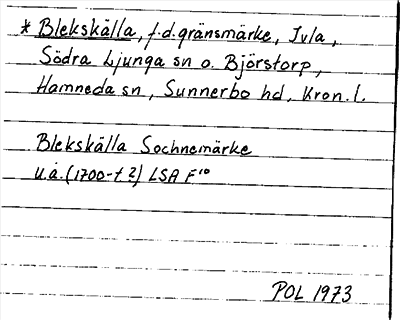 * Blekskälla, f.d. gränsmärke, Ivla,
Södra Ljunga sn o. Björstorp,
Hamneda sn, Sunnerbo hd, Kron. l.
Blekskälla Sochnemärke
u.å. (1700-t ?) LSA F¹⁰
POL 1973